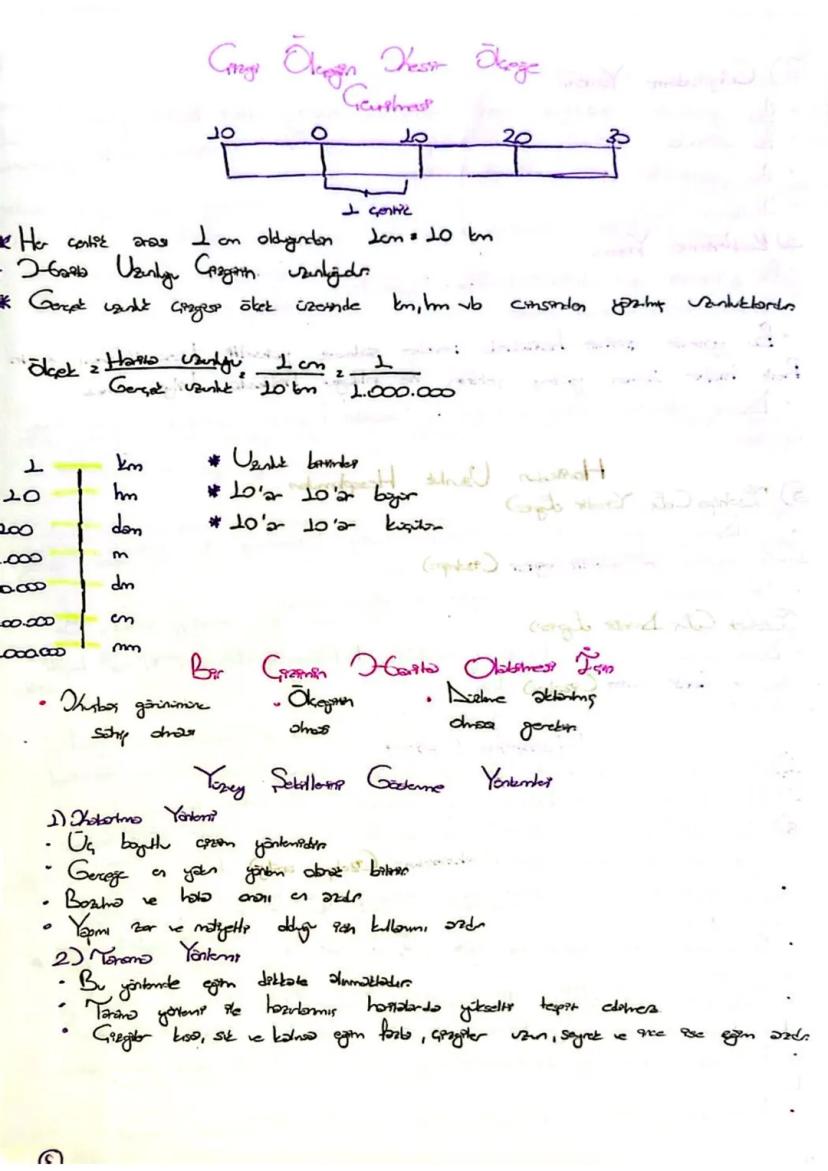 Çizgi Ölçeğin Kesir Ölçeğe
Çevrilmesi
10 0 10 20 30
1 çentik
* Her çentik arası 1 cm olduğundan 1cm = 10 km
- Harita Uzunluğu Çizginin uzunluğudur
* Gerçek uzunluk çizgisi ölçek üzerinde km, hm vb cinsinden yazılmış uzunluklardır
Ölçek = Harita uzunluğu / Gerçek uzunluk = 1 cm / 10 km = 1 / 1.000.000
1 km
10 hm
100 dam
.000 m
0.000 dm
00.000 cm
.000.000 mm
* Uzunluk birimleri
* 10'ar 10'ar büyür
* 10'ar 10'ar küçülür
Bir Çizimin Harita Olabilmesi İçin
• Kuşbakışı görünümüne sahip olması
• Ölçeğinin olması
• Düzleme aktarılmış olması gerekir
Yüzey Şekillerini Gösterme Yöntemleri
1) Kabartma Yöntemi
• Üç boyutlu çizim yöntemidir
• Gerçeğe en yakın yöntem olarak bilinir
• Bozulma ve hata oranı en azdır
• Yapımı zor ve maliyetli olduğu için kullanımı azdır
2) Tarama Yöntemi
• Bu yöntemde eğim dikkate alınmaktadır
• Tarama yöntemi ile hazırlanmış haritalarda yükselti tespit edilmez
• Çizgiler kısa, sık ve kalınsa eğim fazla, çizgiler uzun, seyrek ve ince ise eğim azdır